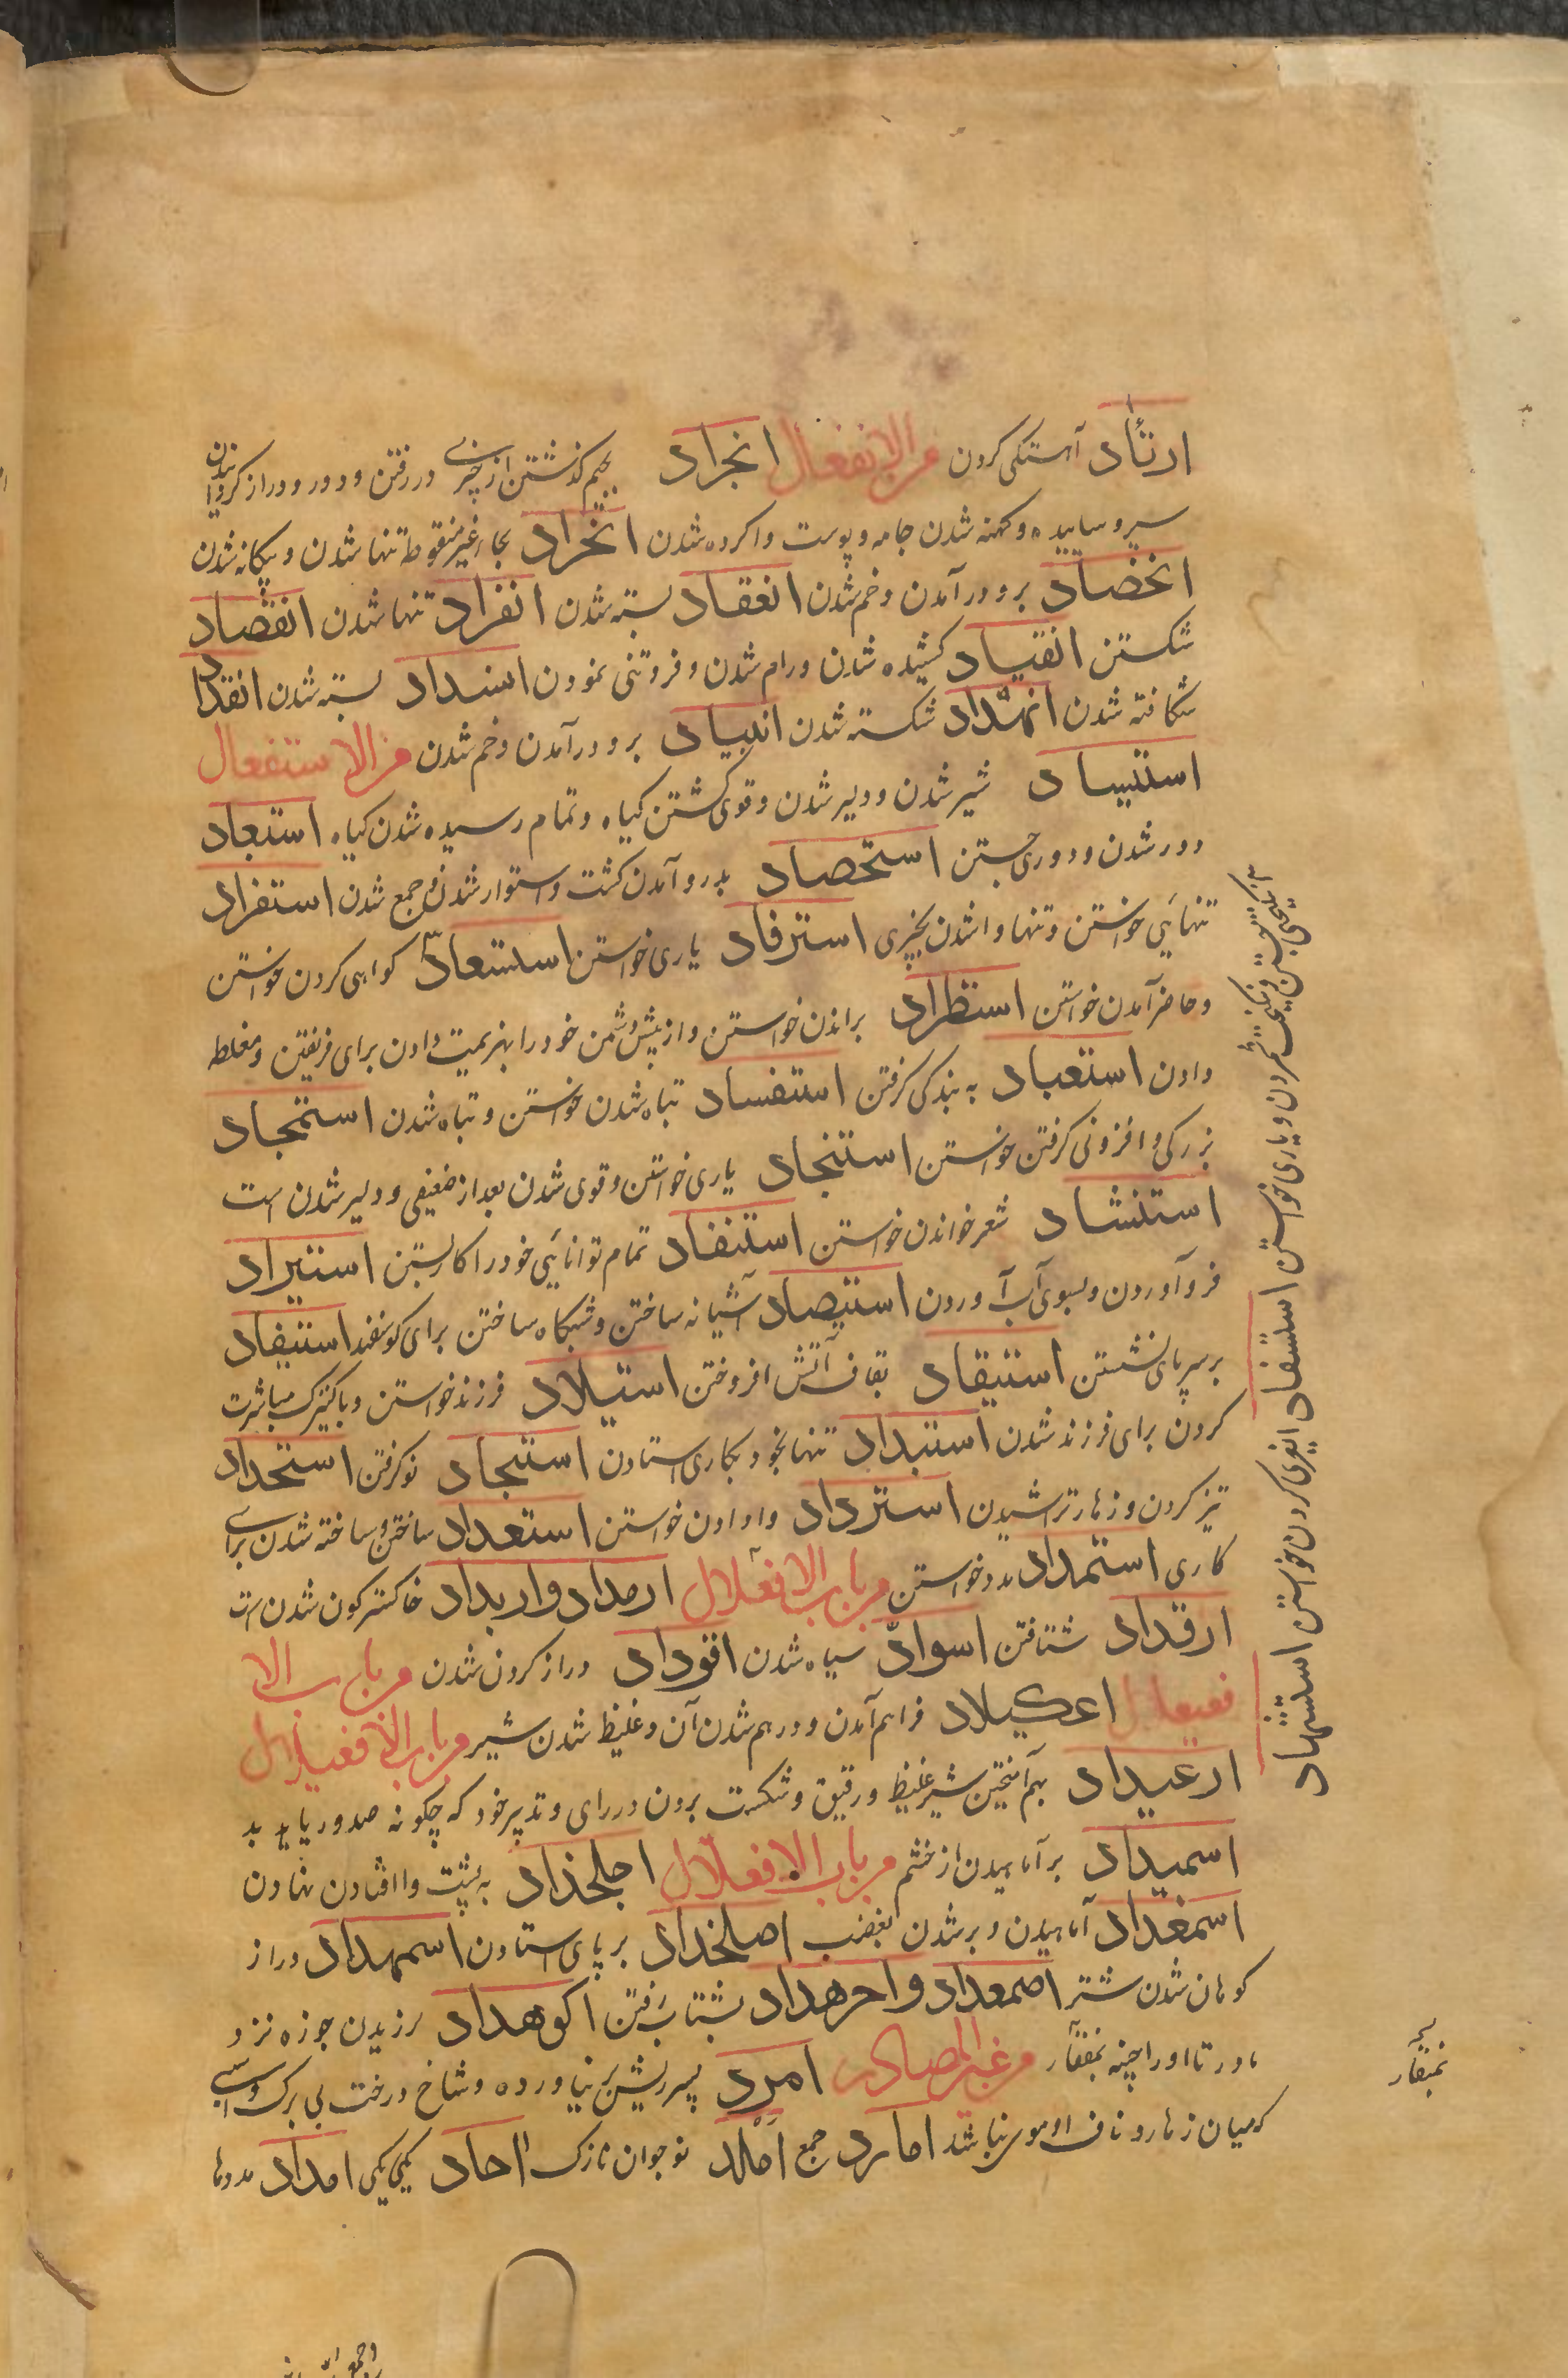 ارتأد آهستگی کردن من الانفعال انجراد بجیم گذشتن از چیزی و در رفتن و دور و دراز گردانیدن
سیر و ساییده و کهنه شدن جامه و پوست وا کرده شدن انحراد بحاء غیر منقوطه تنها شدن و یگانه شدن
انخضاد برو در آمدن و خم شدن انعقاد بسته شدن انفراد تنها شدن انقصاد
شکستن انقیاد کشیده شدن و رام شدن و فروتنی نمودن انسداد بسته شدن انقداد
شکافته شدن انهداد شکسته شدن برو در آمدن و خم شدن من الاستفعال
استیساد شیر شدن و دلیر شدن و قوی گشتن گیاه و تمام رسیده شدن گیاه استبعاد
دور شدن و دوری جستن استحصاد بدرو آمدن کشت و استوار شدن و جمع شدن استفراد
تنهایی خواستن و تنها وا شدن بچیزی استرفاد یاری خواستن استسعاد گواهی کردن خواستن
و حاضر آمدن خواستن استطراد براندن خواستن و از پیش دشمن خود را بهزیمت دادن برای فریفتن و مغلطه
دادن استعباد به بندگی گرفتن استفساد تباه شدن خواستن و تباه شدن استمجاد
بزرگی و افزونی گرفتن خواستن استنجاد یاری خواستن و قوی شدن بعد از ضعیفی و دلیر شدن است
استنشاد شعر خواندن خواستن استنفاد تمام توانایی خود را کار بستن استیراد
فرو آوردن و بسوی آب آوردن استیصاد آشیانه ساختن و شبگاه ساختن برای گوسفند استیفاد
بر سر پای نشستن استیقاد بقاف آتش افروختن استیلاد فرزند خواستن و با کنیزک مباشرت
کردن برای فرزند شدن استبداد تنها بخود بکاری استادن استجداد نو گرفتن استحداد
تیز کردن و زهار تراشیدن استرداد وا دادن خواستن استعداد ساختن و ساخته شدن برای
کاری استمداد مدد خواستن من باب الافعلال ارمداد و اربداد خاکستر گون شدن است
ارقداد شتافتن اسواد سیاه شدن اقوداد دراز گردن شدن من باب الا
فعیعلال اعکیلاد فراهم آمدن و در هم شدن آن و غلیظ شدن شیر من باب الافعیلال
ارغیداد بهم آمیختن شیر غلیظ و رقیق و شکست بردن در رای و تدبیر خود که چگونه صدور یابد
اسمیداد بر آماهیدن از خشم من باب الافعلال اجلخداد به پشت وا افتادن نهادن
اسمغداد آماهیدن و بر شدن بغضب اصلخداد بر پای استادن اسمهداد دراز
کوهان شدن شتر اصمعداد و احرهداد بشتاب رفتن اکوهداد لرزیدن جوزه نزد
مادر تا او را چینه بمنقار من غیر المصادر امرد پسر ریش بر نیاورده و شاخ درخت بی برگ و اسبی
که میان زهار و ناف او موی نباشد امارد جمع املد نوجوان نازک احاد یکی یکی امداد مددها
نیکبختی جستن و نیکبخت شمردن و یاری خواستن استسفاد خواستن استشهاد
بمنقار